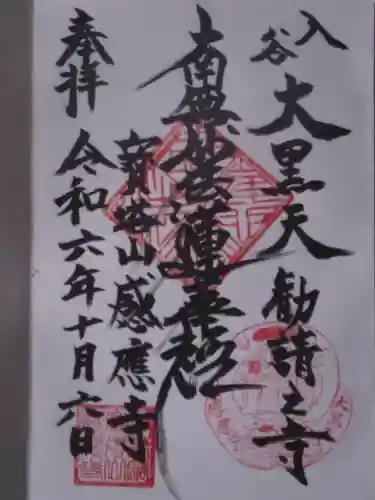 入谷
大黒天勧請之寺
南無妙法蓮華経
寳谷山感應寺
奉拝
令和六年十月六日